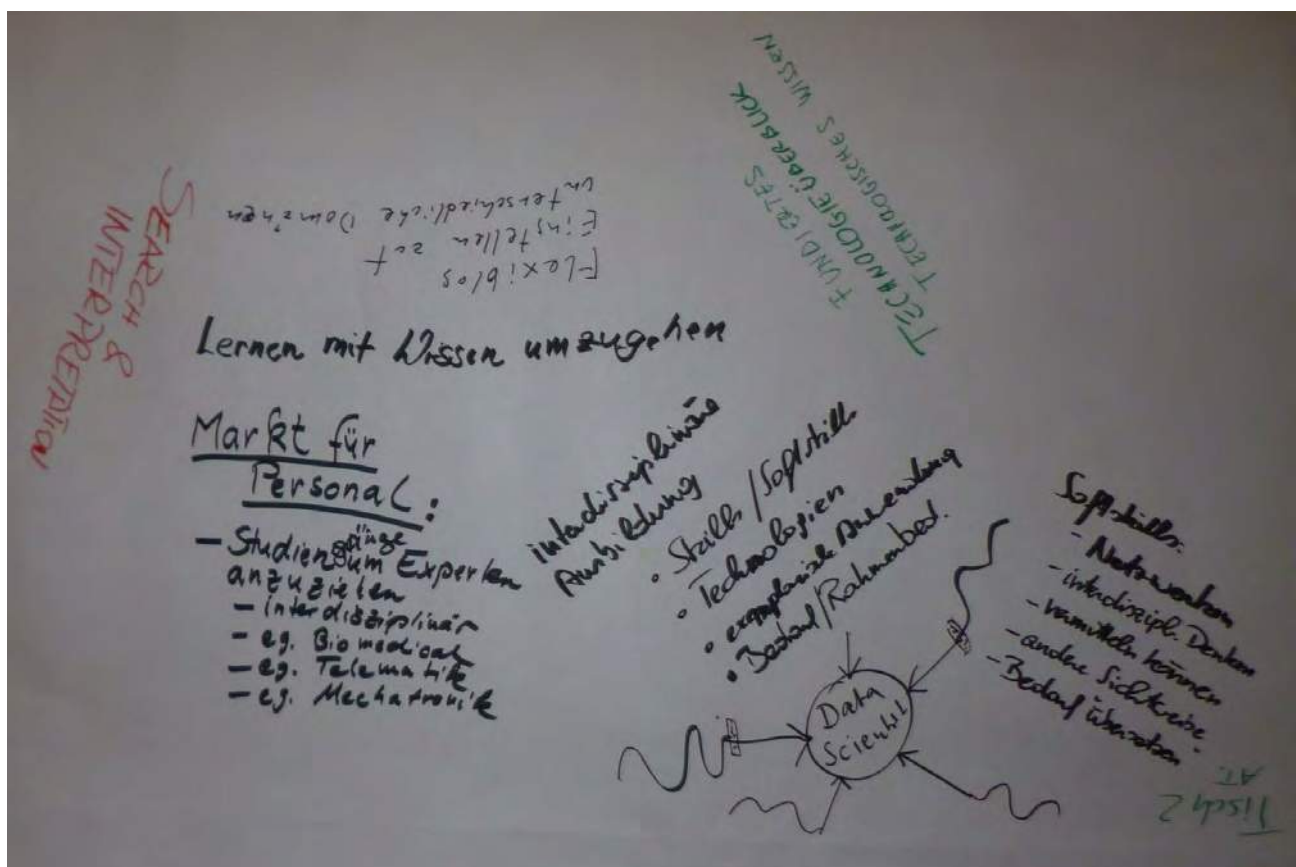 SEARCH &
INTERPRETATION
Flexibles
Einstellen auf
unterschiedliche Domänen
FUNDIERTES
TECHNOLOGIEÜBERBLICK
TECHNOLOGISCHES WISSEN
Lernen mit Wissen umzugehen
Markt für
Personal:
- Studiengänge
um Experten
anzuziehen
- interdisziplinär
- eg. Biomedical
- eg. Telematik
- eg. Mechatronik
interdisziplinäre
Ausbildung
• Skills / Softskills
• Technologien
• exemplarische Anwendung
• Bedarf / Rahmenbed.
Data
Scientist
Softskills:
- Netzwerken
- interdiszipl. Denken
- vermitteln können
- andere Sichtweise
- Bedarf übersetzen
Tisch 2
AT.